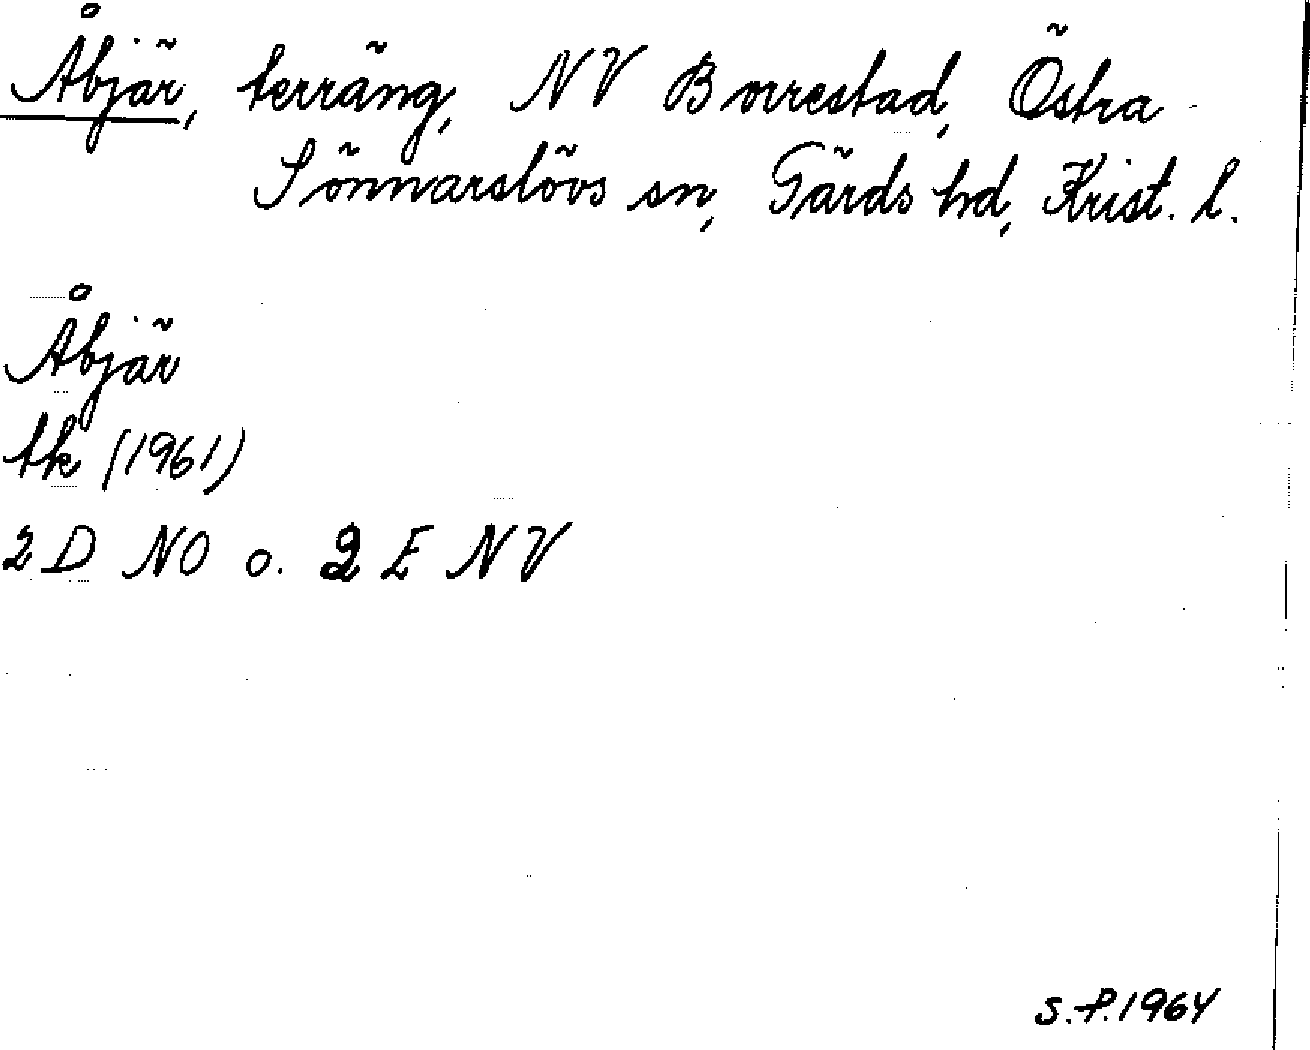 Åbjär, terräng, NV Borrestad, Östra
Sönnarslövs sn, Gärds hd, Krist. l.
Åbjär
tk (1961)
2 D NO o. 2 E NV
S.P. 1964